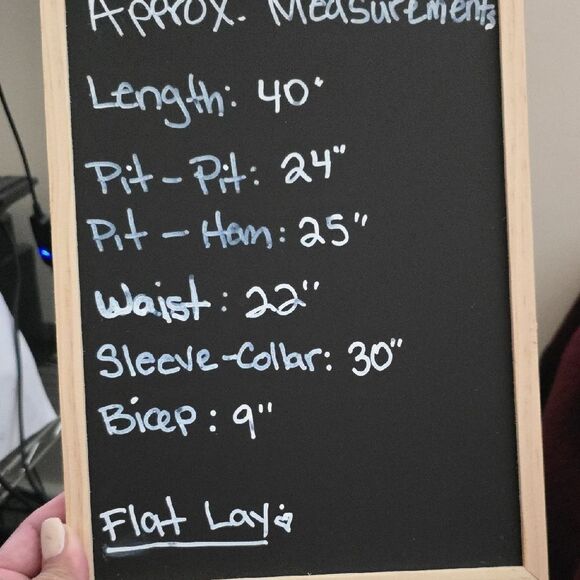 Approx. Measurements
Length: 40"
Pit-Pit: 24"
Pit-Hem: 25"
Waist: 22"
Sleeve-Collar: 30"
Bicep: 9"
Flat Lay: